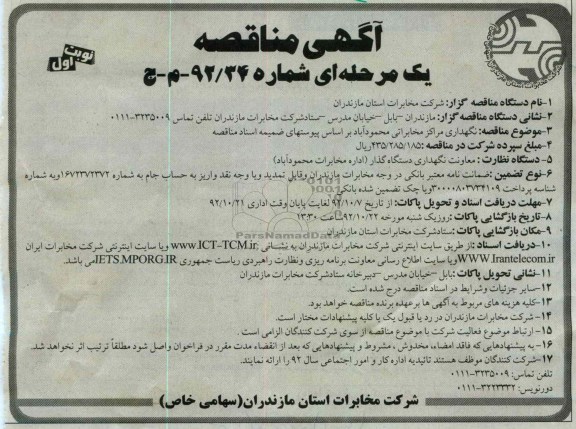 آگهی مناقصه
یک مرحله‌ای شماره ۹۲/۳۴-م-ج
نوبت اول
۱-نام دستگاه مناقصه گزار: شرکت مخابرات استان مازندران
۲-نشانی دستگاه مناقصه گزار: مازندران –بابل –خیابان مدرس –ستادشرکت مخابرات مازندران تلفن تماس ۳۲۳۵۰۰۹-۰۱۱۱
۳-موضوع مناقصه: نگهداری مراکز مخابراتی محمودآباد بر اساس پیوستهای ضمیمه اسناد مناقصه
۴-مبلغ سپرده شرکت در مناقصه :۴۳۵/۲۸۵/۱۸۵ریال
۵- دستگاه نظارت : معاونت نگهداری دستگاه گذار (اداره مخابرات محمودآباد)
۶-نوع تضمین :ضمانت نامه معتبر بانکی در وجه مخابرات مازندران وقابل تمدید ویا وجه نقد واریز به حساب جام به شماره ۱۶۷۲۳۷۲۳۷۲ویه شماره
شناسه پرداخت ۳۰۰۰۰۸۰۳۷۳۴۱۰۹ویا چک تضمین شده بانکی
۷-مهلت دریافت اسناد و تحویل پاکات: از تاریخ ۹۲/۱۰/۷ لغایت پایان وقت اداری ۹۲/۱۰/۲۱
۸-تاریخ بازگشایی پاکات :روزیک شنبه مورخه ۹۲/۱۰/۲۲ساعت ۱۳:۳۰
۹-مکان بازگشایی پاکات :ستادشرکت مخابرات استان مازندران
۱۰-دریافت اسناد :از طریق سایت اینترنتی شرکت مخابرات مازندران به نشانی :www.ICT-TCM.ir ویا سایت اینترنتی شرکت مخابرات ایران
WWW.Irantelecom.irویا سایت اطلاع رسانی معاونت برنامه ریزی ونظارت راهبردی ریاست جمهوری IETS.MPORG.IRمی باشد.
۱۱-نشانی تحویل پاکات :بابل –خیابان مدرس –دبیرخانه ستادشرکت مخابرات مازندران
۱۲-سایر جزئیات وشرایط در اسناد مناقصه درج شده است.
۱۳-کلیه هزینه های مربوط به آگهی ها برعهده برنده مناقصه خواهد بود.
۱۴- شرکت مخابرات مازندران در رد یا قبول یک یا کلیه پیشنهادات مختار است.
۱۵- ارتباط موضوع فعالیت شرکت با موضوع مناقصه از سوی شرکت کنندگان الزامی است .
۱۶-به پیشنهادهایی که فاقد امضاء، مخدوش ، مشروط و پیشنهادهایی که بعد از انقضاء مدت مقرر در فراخوان واصل شود مطلقاً ترتیب اثر نخواهد شد.
۱۷-شرکت کنندگان موظف هستند تائیدیه اداره کار و امور اجتماعی سال ۹۲ را ارائه نمایند.
تلفن تماس: ۳۲۳۵۰۰۹-۰۱۱۱
دورنویس: ۳۲۲۳۳۳۲-۰۱۱۱
شرکت مخابرات استان مازندران(سهامی خاص)
ParsNamadData